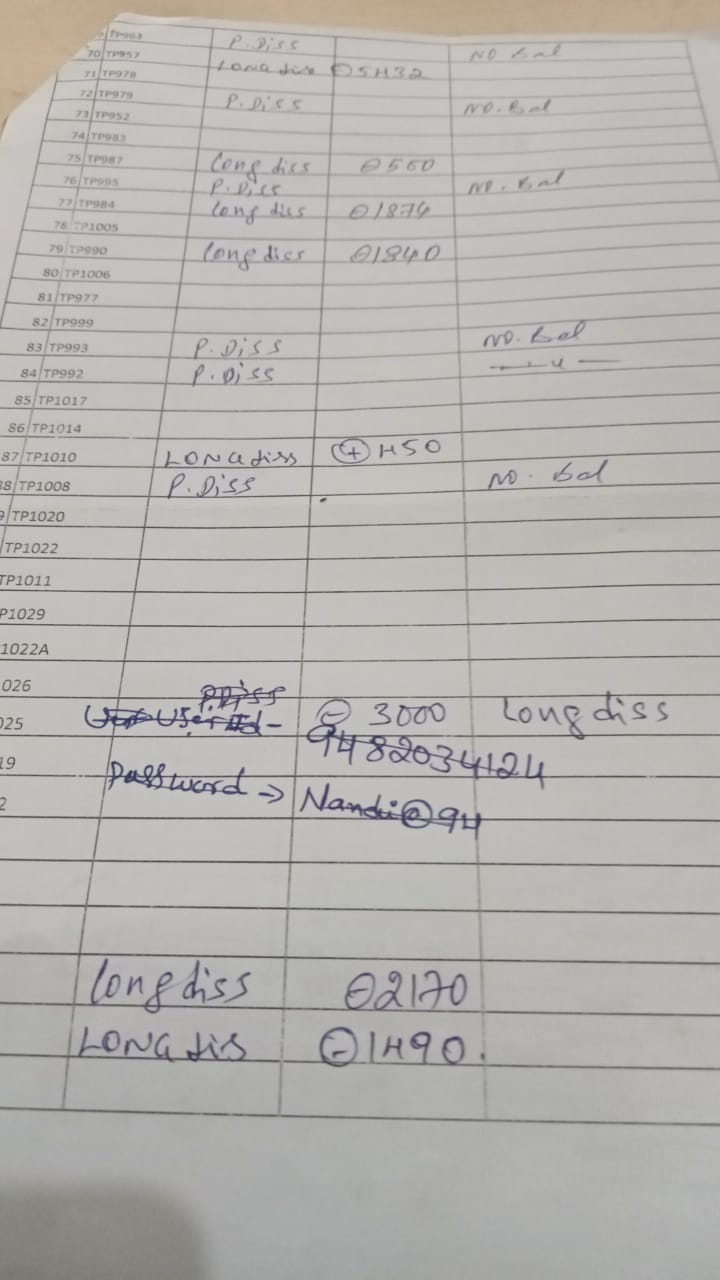 TP963 P.Diss NO Bal
70 TP957
71 TP978 LONG diss ⊖ 5432
72 TP979 P.Diss NO.Bal
73 TP952
74 TP983
75 TP987 Long diss ⊖ 560
76 TP995 P.Diss NO.Bal
77 TP984 Long diss ⊖ 1874
78 TP1005
79 TP990 Long diss ⊖ 1840
80 TP1006
81 TP977
82 TP999
83 TP993 P.Diss NO.Bal
84 TP992 P.Diss — 〃 —
85 TP1017
86 TP1014
87 TP1010 LONG diss ⊕ 450
88 TP1008 P.Diss NO. Bal
9 TP1020
TP1022
TP1011
P1029
1022A
026 P.Diss
025 User Id- ⊖ 3000 Long diss
9482034124
19 Password → Nandi@94
2
Long diss ⊖ 2170
LONG dis ⊖ 1490.